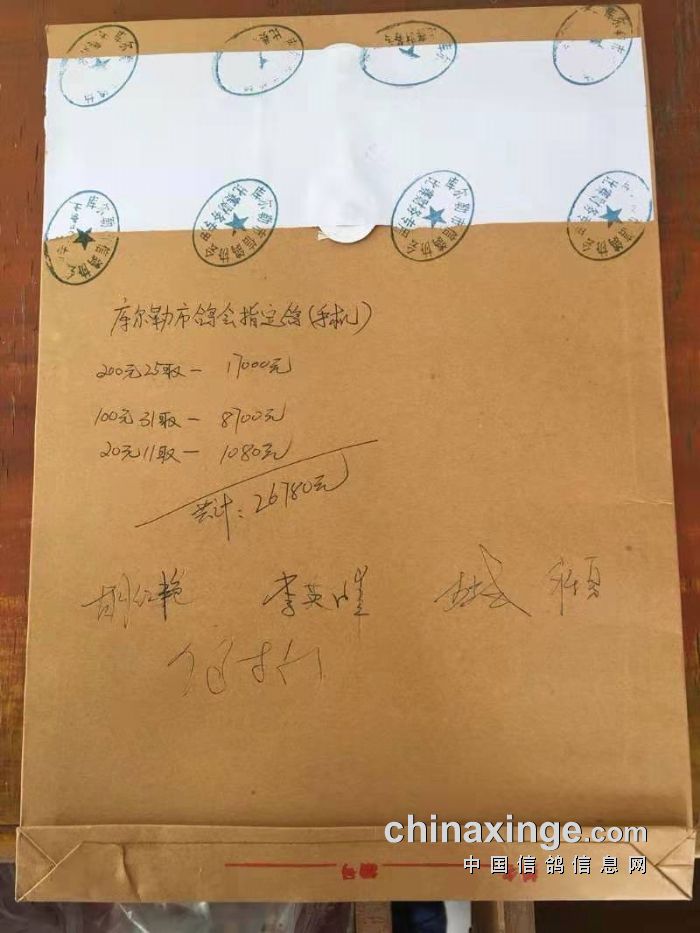 库尔勒市信鸽协会
比赛财务专用
库尔勒市鸽会指定鸽(手机)
200元25取一 17000元
100元31取一 8700元
20元11取一 1080元
共计:26780元
胡红艳 李英
chinaxinge.com
中国信鸽信息网